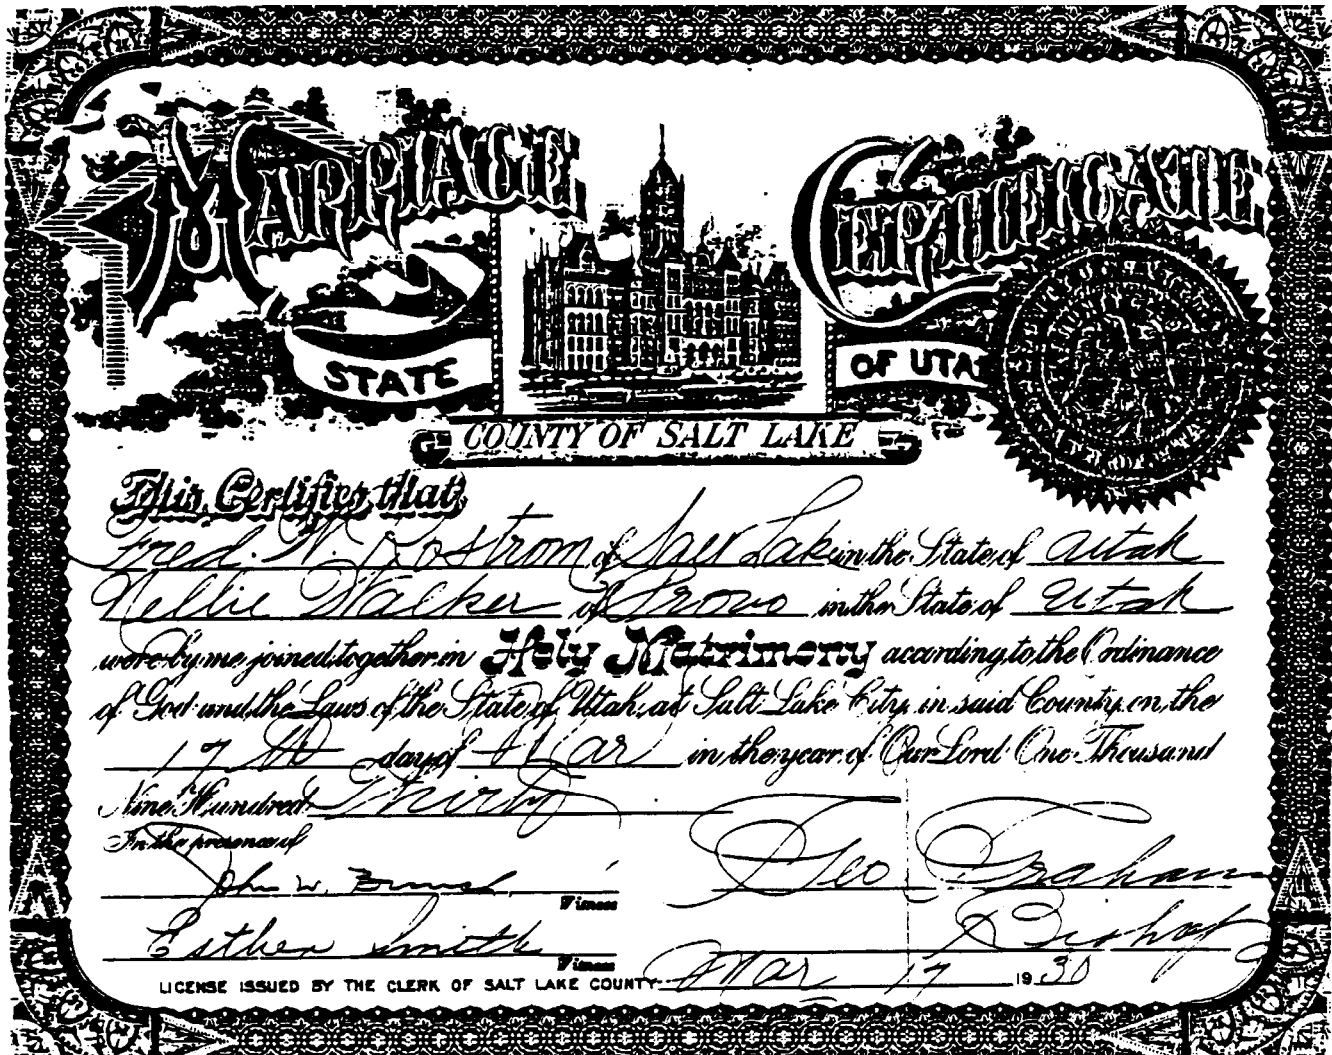 MARRIAGE CERTIFICATE
STATE OF UTAH
COUNTY OF SALT LAKE
This Certifies that
Fred. W. Rostrom of Salt Lake in the State of Utah
Nellie Walker of Provo in the State of Utah
were by me joined together in Holy Matrimony according to the Ordinance
of God and the Laws of the State of Utah, at Salt Lake City, in said County, on the
17th day of Mar in the year of Our Lord One Thousand
Nine Hundred Thirty
In the presence of
John W. Geo Graham
Witness
Esther Smith Bishop
Witness
LICENSE ISSUED BY THE CLERK OF SALT LAKE COUNTY Mar 17 1930